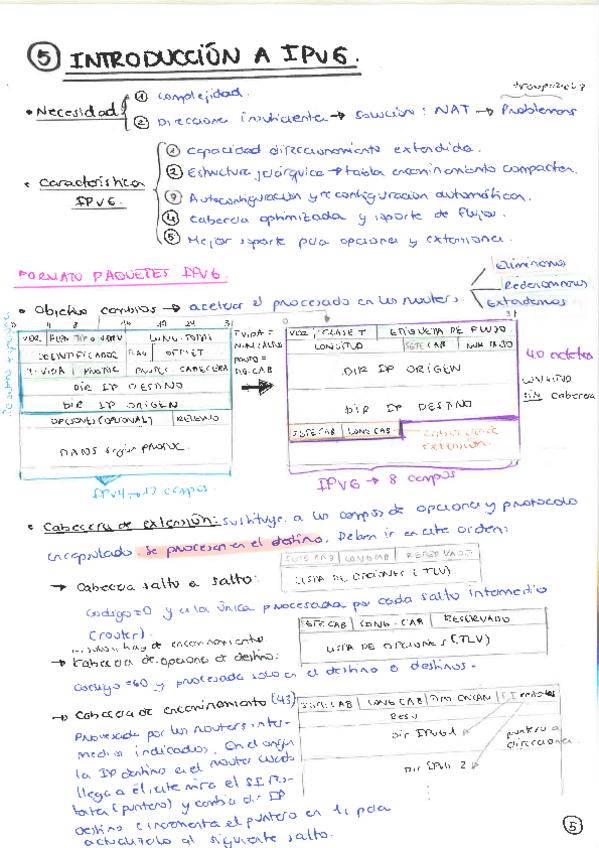 ⑤ INTRODUCCIÓN A IPV6.
• Necesidad
① complejidad.
② Direcciones insuficientes → solución: NAT → Problemas
• Características IPV6.
① Capacidad direccionamiento extendida.
② Estructura jerárquica → tabla encaminamiento compactas.
③ Autoconfiguración y reconfiguración automáticas.
④ Cabecera optimizada y soporte de flujos.
⑤ Mejor soporte para opciones y extensiones.
FORMATO PAQUETES IPV6.
• Objetivo cambios → acelerar el procesado en los routers.
Eliminamos
Redenominamos
Extendemos
0 4 8 16 19 24 31
VER
LONG. TOTAL
IDENTIFICADOR FLAG OFFSET
T. VIDA PROTOC
CABECERA
DIR IP DESTINO
DIR IP ORIGEN
OPCIONES (OPCIONAL) RELLENO
DATOS según PROTOC.
IPV4 → 12 campos.
T VIDA =
SIG. CAB
0 31
VER CLASE T ETIQUETA DE FLUJO
LONGITUD SGTE CAB
DIR IP ORIGEN
DIR IP DESTINO
SGTE CAB LONG CAB
Cabecera de
Extensión.
IPV6 → 8 campos
40 octetos
LONGITUD
SIN cabecera
• Cabecera de extensión: sustituye a los campos de opciones y protocolo
encapsulado. Se procesan en el destino. Deben ir en este orden:
→ Cabecera salto a salto:
SGTE CAB LONG CAB RESERVADO
LISTA DE OPCIONES (TLV)
codigo = 0 y es la única procesada por cada salto intermedio
(router).
→ Cabecera de opciones de destino:
SGTE CAB LONG. CAB RESERVADO
LISTA DE OPCIONES (TLV)
codigo = 60 y procesada solo en el destino o destinos.
→ Cabecera de encaminamiento (43)
SGTE CAB LONG CAB TIPO ENCAM
Dir IPV6 1
Dir IPV6 2
puntero a
direcciones
Procesada por los routers inter-
medios indicados. En el origen
la IP destino es el router cuando
llega a él, este mira el
(puntero) y cambia dir IP
destino e incrementa el puntero en 1, para
actualizarlo al siguiente salto.
⑤